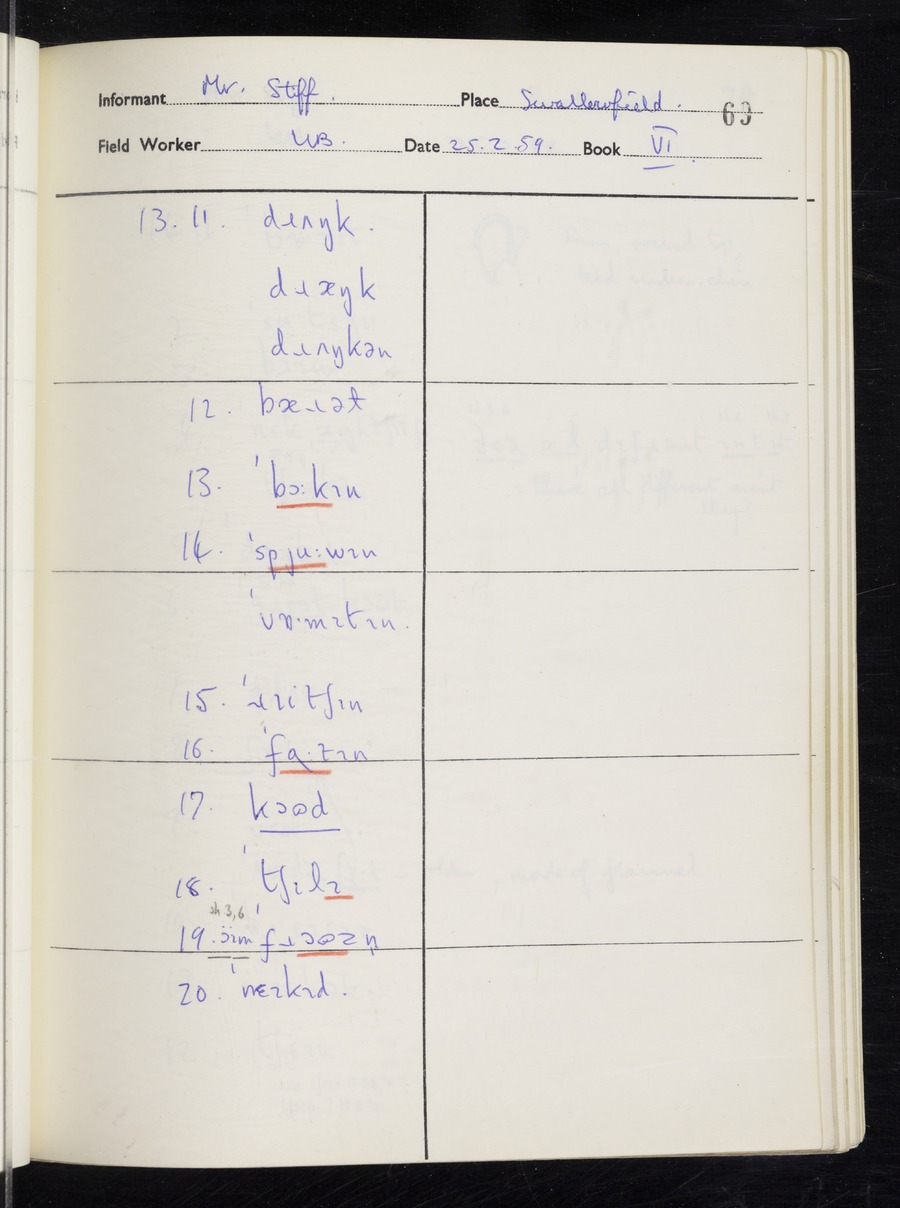 Informant Mr. Stiff. Place Swallowfield. 
Field Worker WB. Date 25.2.59. Book VI
13. 11. dɹʌŋk.
dɹæŋk
dɹʌŋkən
12. bæɹət
13. ˈbɔ:kɪn
14. ˈspju:wɪn
ˈvɒ·mɪtɪn.
15. ˈɹɪitʃɪn
16. ˈfa:tɪn
17. kɔʊd
18. ˈtʃɪlɪ
sh 3,6
19. ɔ̈ɪm ˈfɹɔʊzn̩
20. ˈnɛɪkɪd.